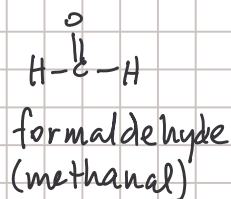 O
H-C-H
formaldehyde
(methanal)